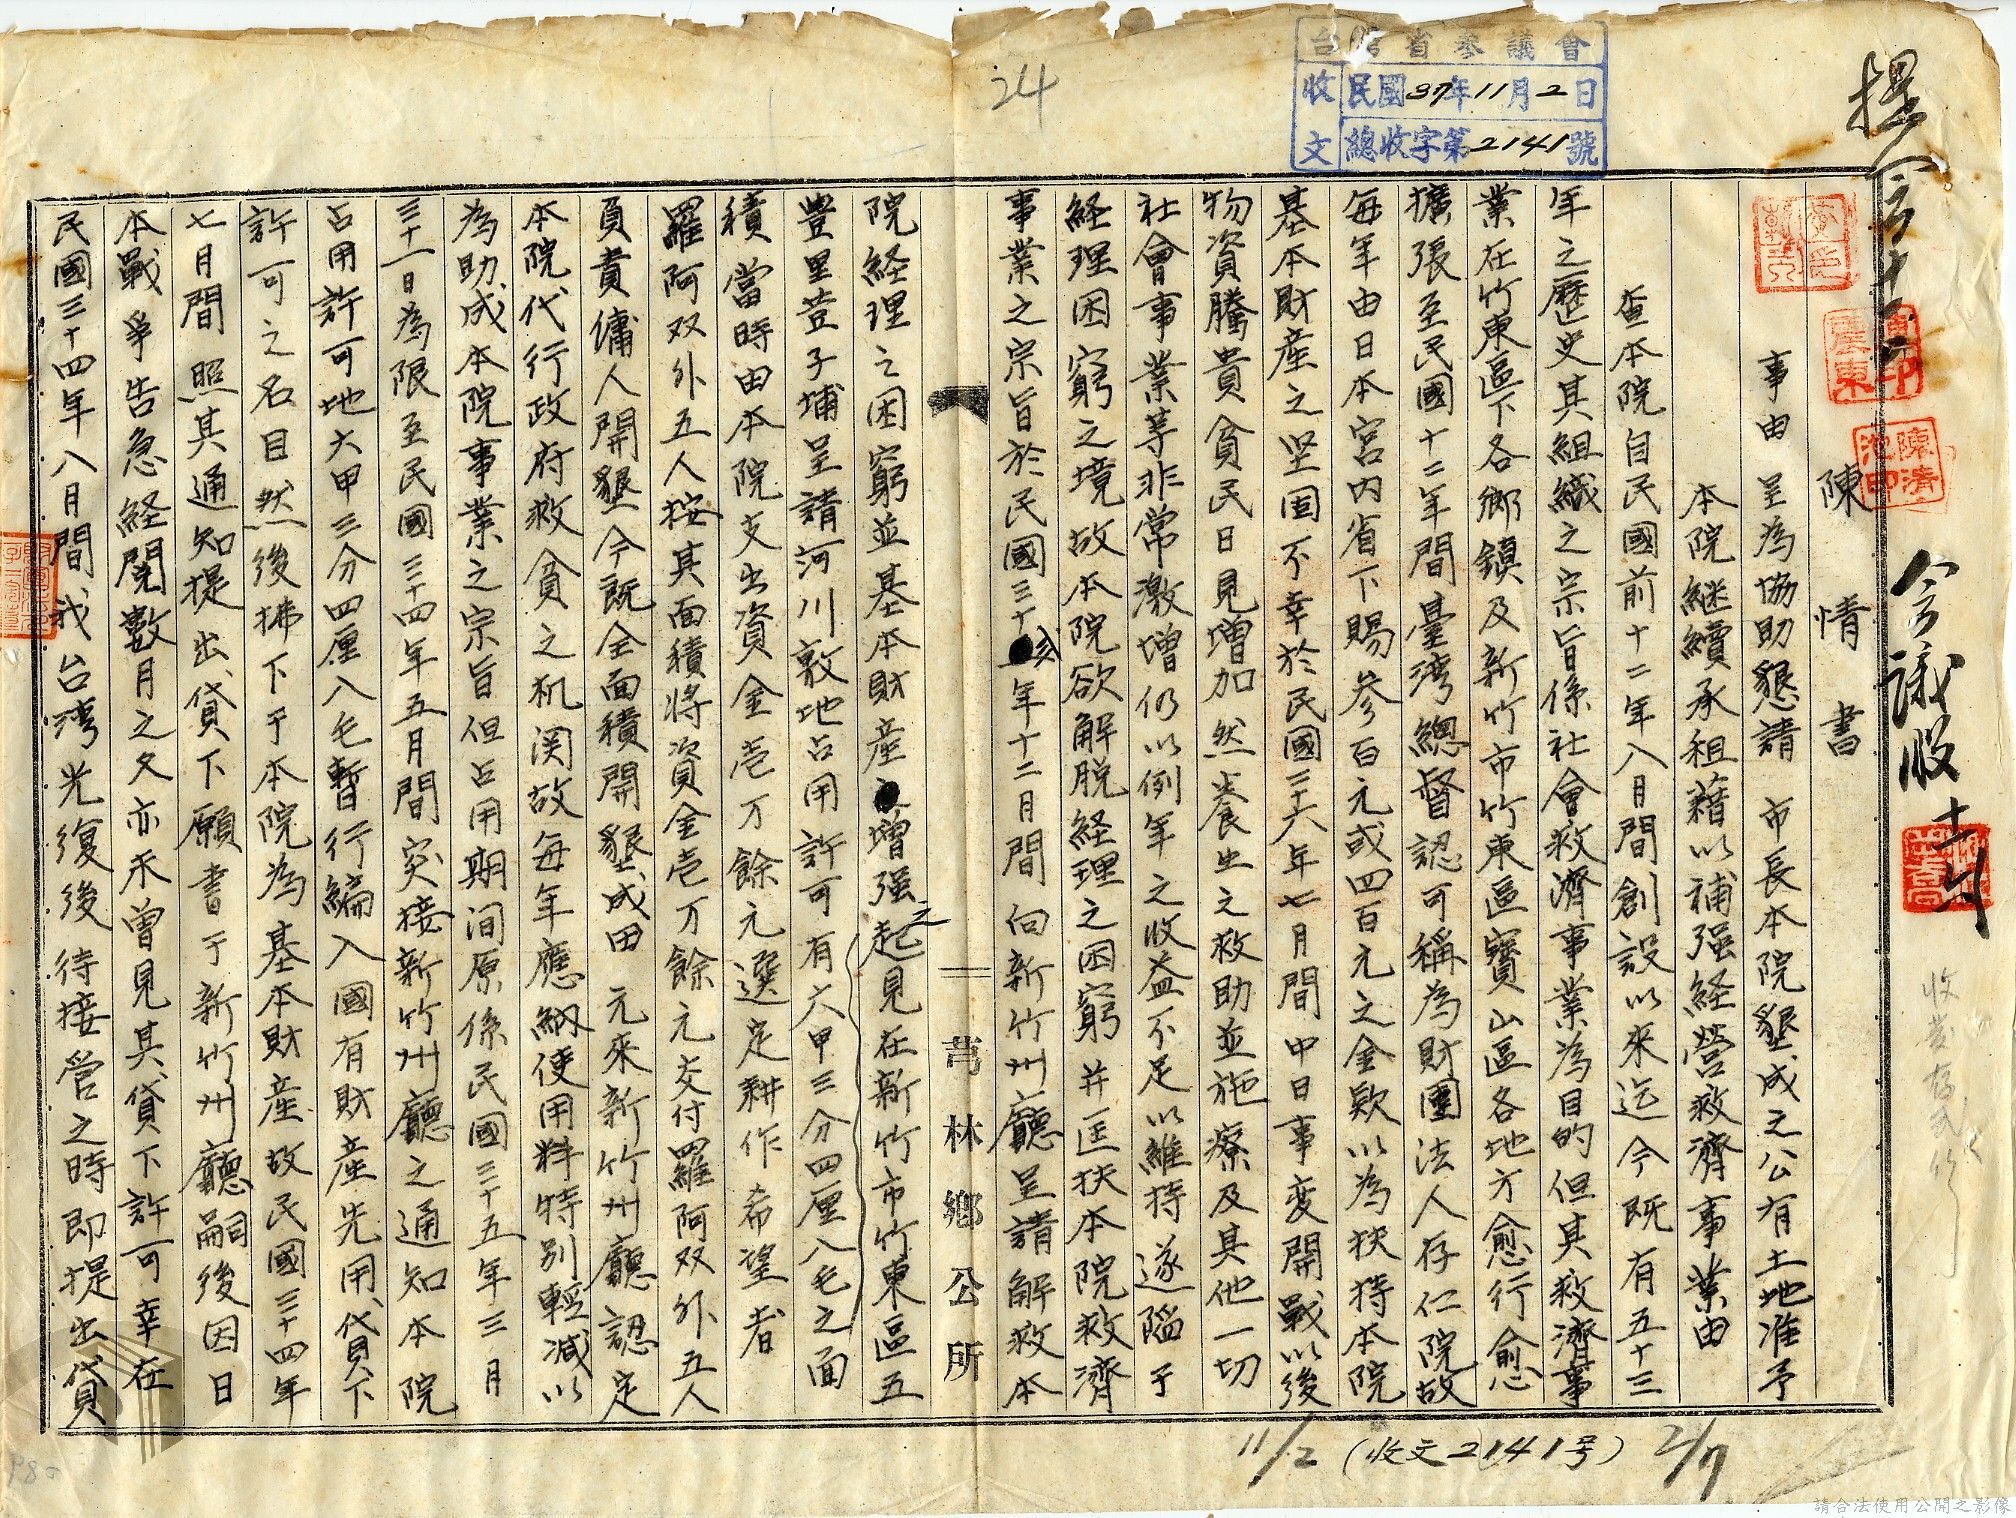 台灣省參議會
收文 民國37年11月2日
總收字第2141號
24
提會十二
會議收
陳情書
事由 呈為協助懇請 市長本院墾成之公有土地准予
本院継續承租藉以補强経營救濟事業由
查本院自民國前十二年八月間創設以來迄今既有五十三
年之歷史其組織之宗旨係社會救濟事業為目的但其救濟事
業在竹東區下各鄉鎮及新竹市竹東區寶山區各地方愈行愈
擴張至民國十二年間臺湾總督認可稱為財團法人存仁院故
每年由日本宮内省下賜參百元或四百元之金欵以為扶持本院
基本財產之坚固不幸於民國二十六年七月間中日事变開戰以後
物資騰貴貧民日見增加然養生之救助並施療及其他一切
社會事業等非常激增仍以例年之收益不足以維持遂陷于
経理困窮之境故本院欲解脱経理之困窮并匡扶本院救濟
事業之宗旨於民國三十年十二月間向新竹州廳呈請解救本
芎林鄉公所
院経理之困窮並基本財產增强之起見在新竹市竹東區五
豊里荳子埔呈請河川敷地占用許可有六甲三分四厘八毛之面
積當時由本院支出資金壱万餘元選定耕作希望者
羅阿双外五人按其面積將資金壱万餘元交付羅阿双外五人
負責傭人開墾今既全面積開墾成田 元來新竹州廳認定
本院代行政府救貧之机関故每年應納使用料特别輕減以
為助成本院事業之宗旨但占用期间原係民國三十五年三月
三十一日為限至民國三十四年五月間突接新竹州廳之通知本院
占用許可地六甲三分四厘八毛暫行編入國有財產先用貸下
許可之名目然後拂下于本院為基本財產故民國三十四年
七月間照其通知提出貸下願書于新竹州廳嗣後因日
本戰爭告急経閱數月之久亦未曾見其貸下許可幸在
民國三十四年八月間我台湾光復後待接管之時即提出貸
11/2（收文2141号）2/7
請合法使用公開之影像